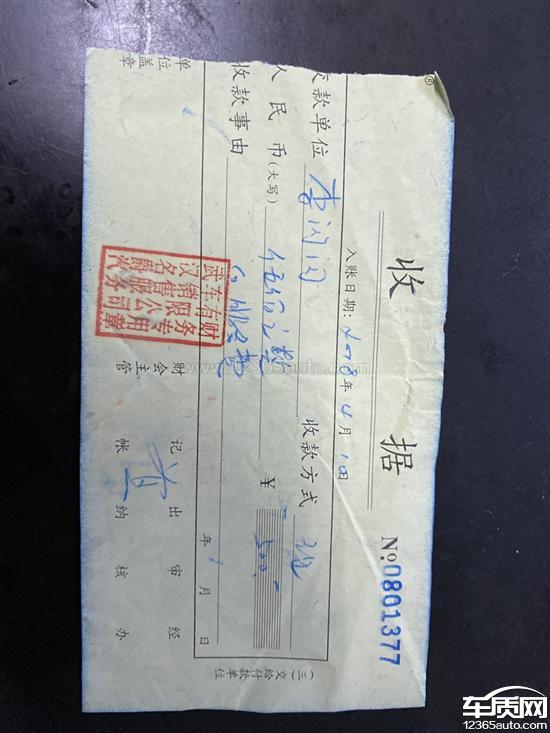 收 据 №0801377
入账日期：2018年4月10日
交款单位 李闪闪 收款方式
人民币（大写） 伍佰元整 ￥ 500
收款事由
年 月 日
单位盖章 财会主管 记帐 出纳 审核 经办
（三）交给付款单位
武汉名爵汽
车销售服务
有限公司
财务专用章
www.12365auto.com
车质网
12365auto.com